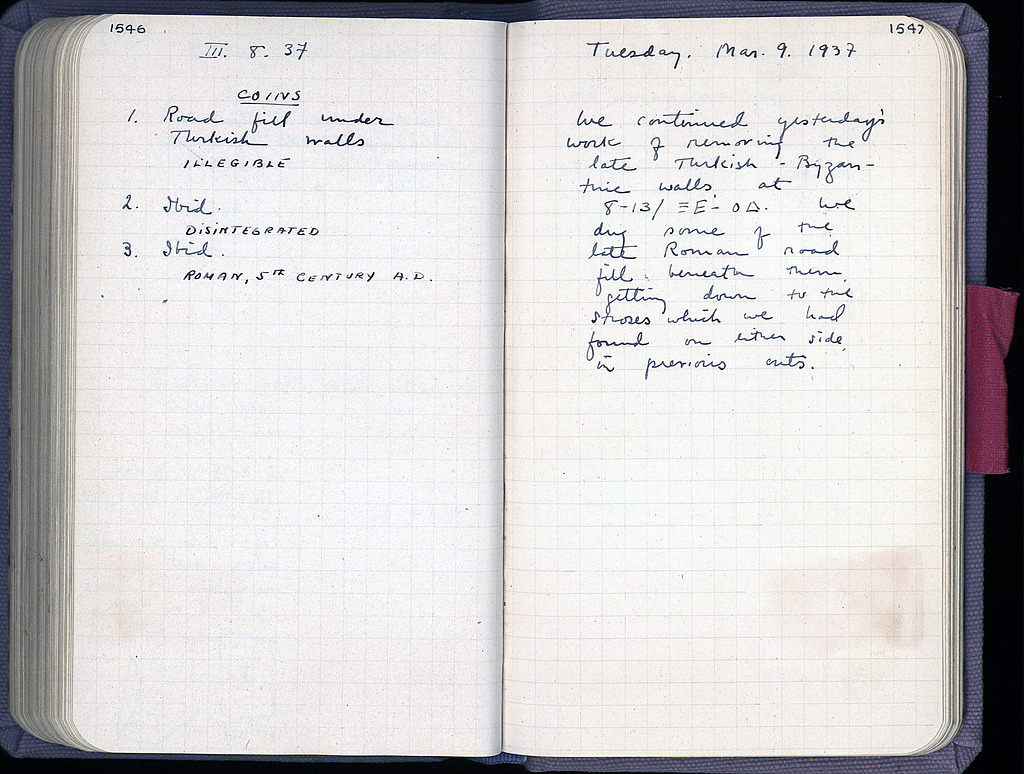 1546
III. 8. 37
COINS
1. Road fill under
Turkish walls
ILLEGIBLE
2. Ibid.
DISINTEGRATED
3. Ibid.
ROMAN, 5TH CENTURY A.D.
1547
Tuesday, Mar. 9. 1937
We continued yesterday's
work of removing the
late Turkish - Byzan-
tine walls at
8-13/ΞE-OΔ. We
dug some of the
late Roman road
fill beneath them,
getting down to the
stroses which we had
found on either side,
in previous cuts.